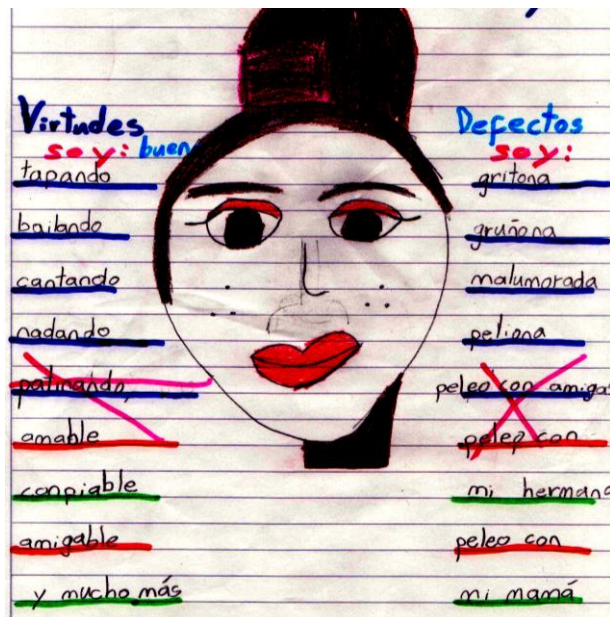 Virtudes
soy: buen
tapando
bailando
cantando
nadando
patinando,
amable
conpiable
amigable
y mucho más
Defectos
soy:
gritona
gruñona
malumorada
peliona
peleo con amigas
peleo con
mi hermana
peleo con
mi mamá